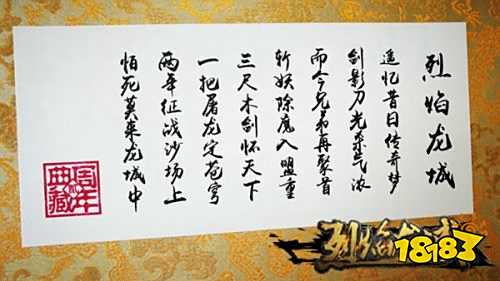 烈焰龙城
遥忆昔日传奇梦
剑影刀光杀气浓
而今兄弟再聚首
斩妖除魔入盟重
三尺木剑怀天下
一把屠龙定苍穹
两年征战沙场上
怕死莫来龙城中
周年典藏
烈焰龙城
18183